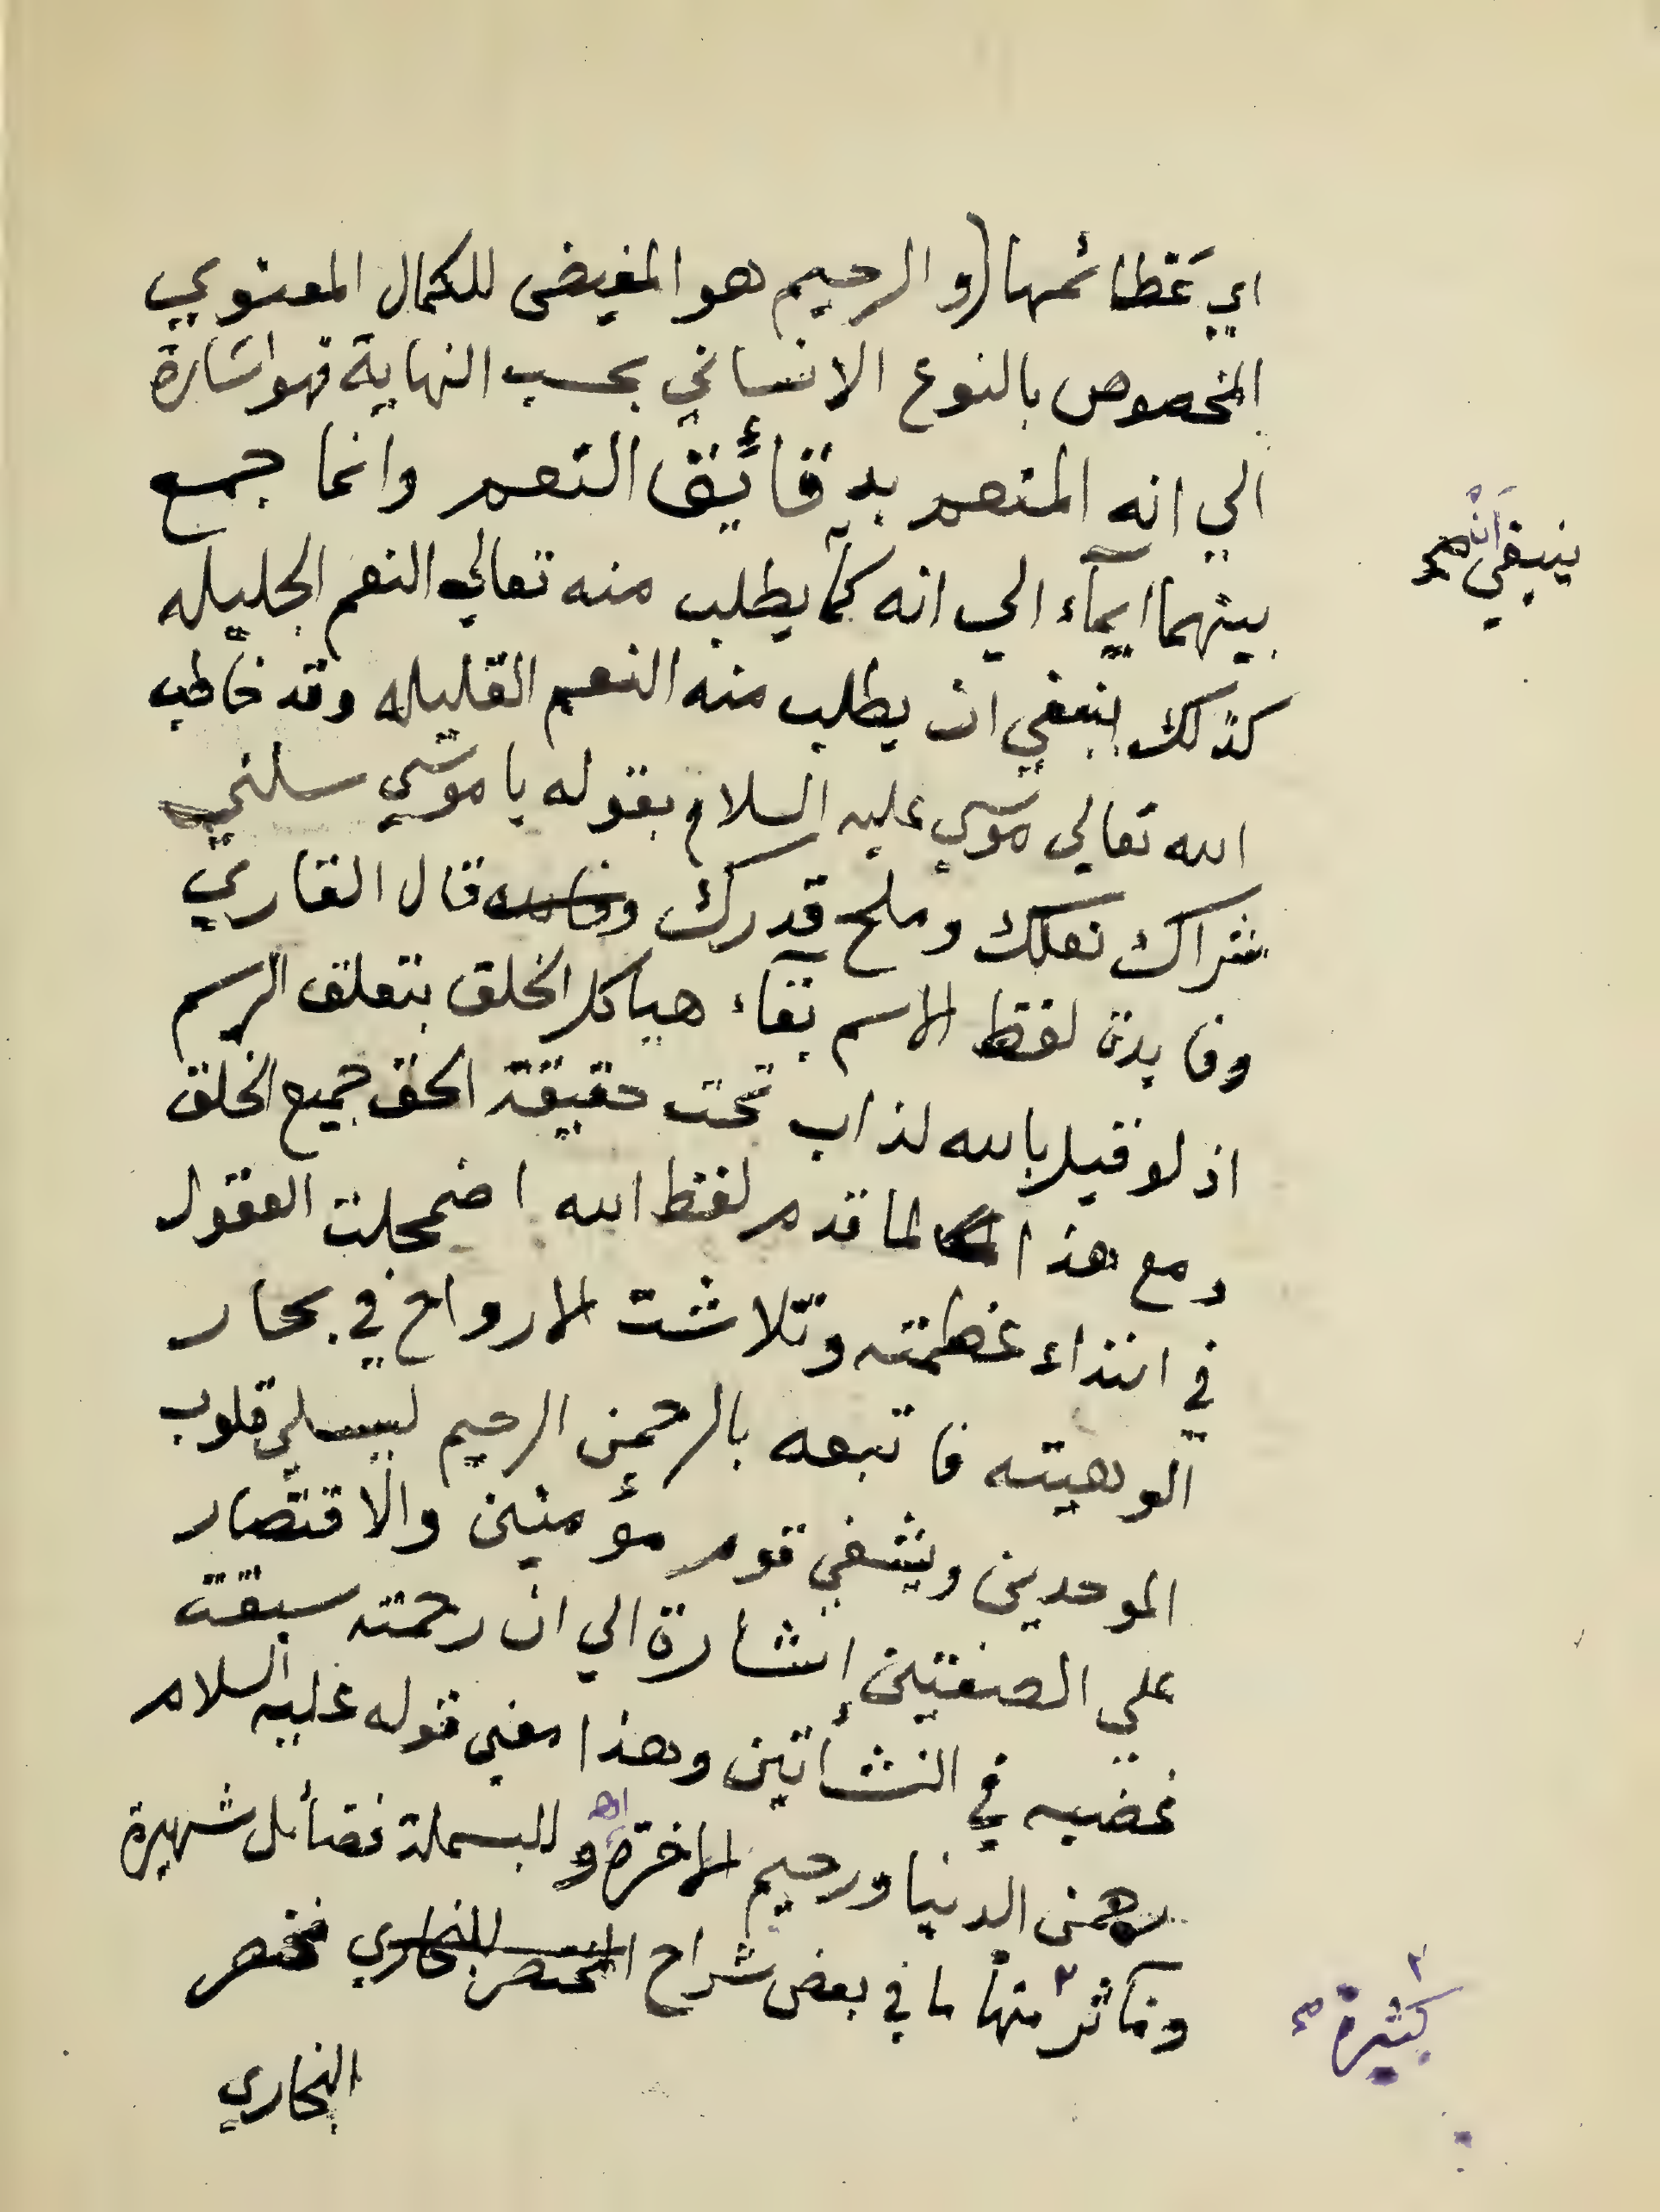 اي عَظائمها (والرحيم هو المفيض للكمال المعنوي
المخصوص بالنوع الانساني بحسب النهاية فهو اشارة
الي انه المنعم بدقائق النعم وانما جمع
بينهما ايمآء الي انه كما يطلب منه تعالي النعم الجليله
كذلك ينبغي ان يطلب منه النعم القليله وقد خاطب
الله تعالي موسي عليه السلام بقوله يا موسي سلني
شراك نعلك وملح قدرك قال القاري
وفايدة لفظ الاسم بقآء هياكل الخلق بتعلق الرسم
اذ لو قيل بالله لذاب تحت حقيقة الحق جميع الخلق
ومع هذا لما قدم لفظ الله اضمحلت العقول
في ابتداء عظمته وتلاشت الارواح في بحار
الوهيته فاتبعه بالرحمن الرحيم ليسلي قلوب
الموحدين ويشفي قوم مؤمنين والاقتصار
علي الصفتين إشارة الي ان رحمته سبقت
غضبه في النشأتين وهذا معني قوله عليه السلام
رحمن الدنيا ورحيم الاخرة اهـ وللبسملة فضائل شهيرة
ومآثر ٢ منها ما في بعض شراح المختصر للبخاري مختصر
البخاري
ينبغي انه صح
٢ كثيرة صح